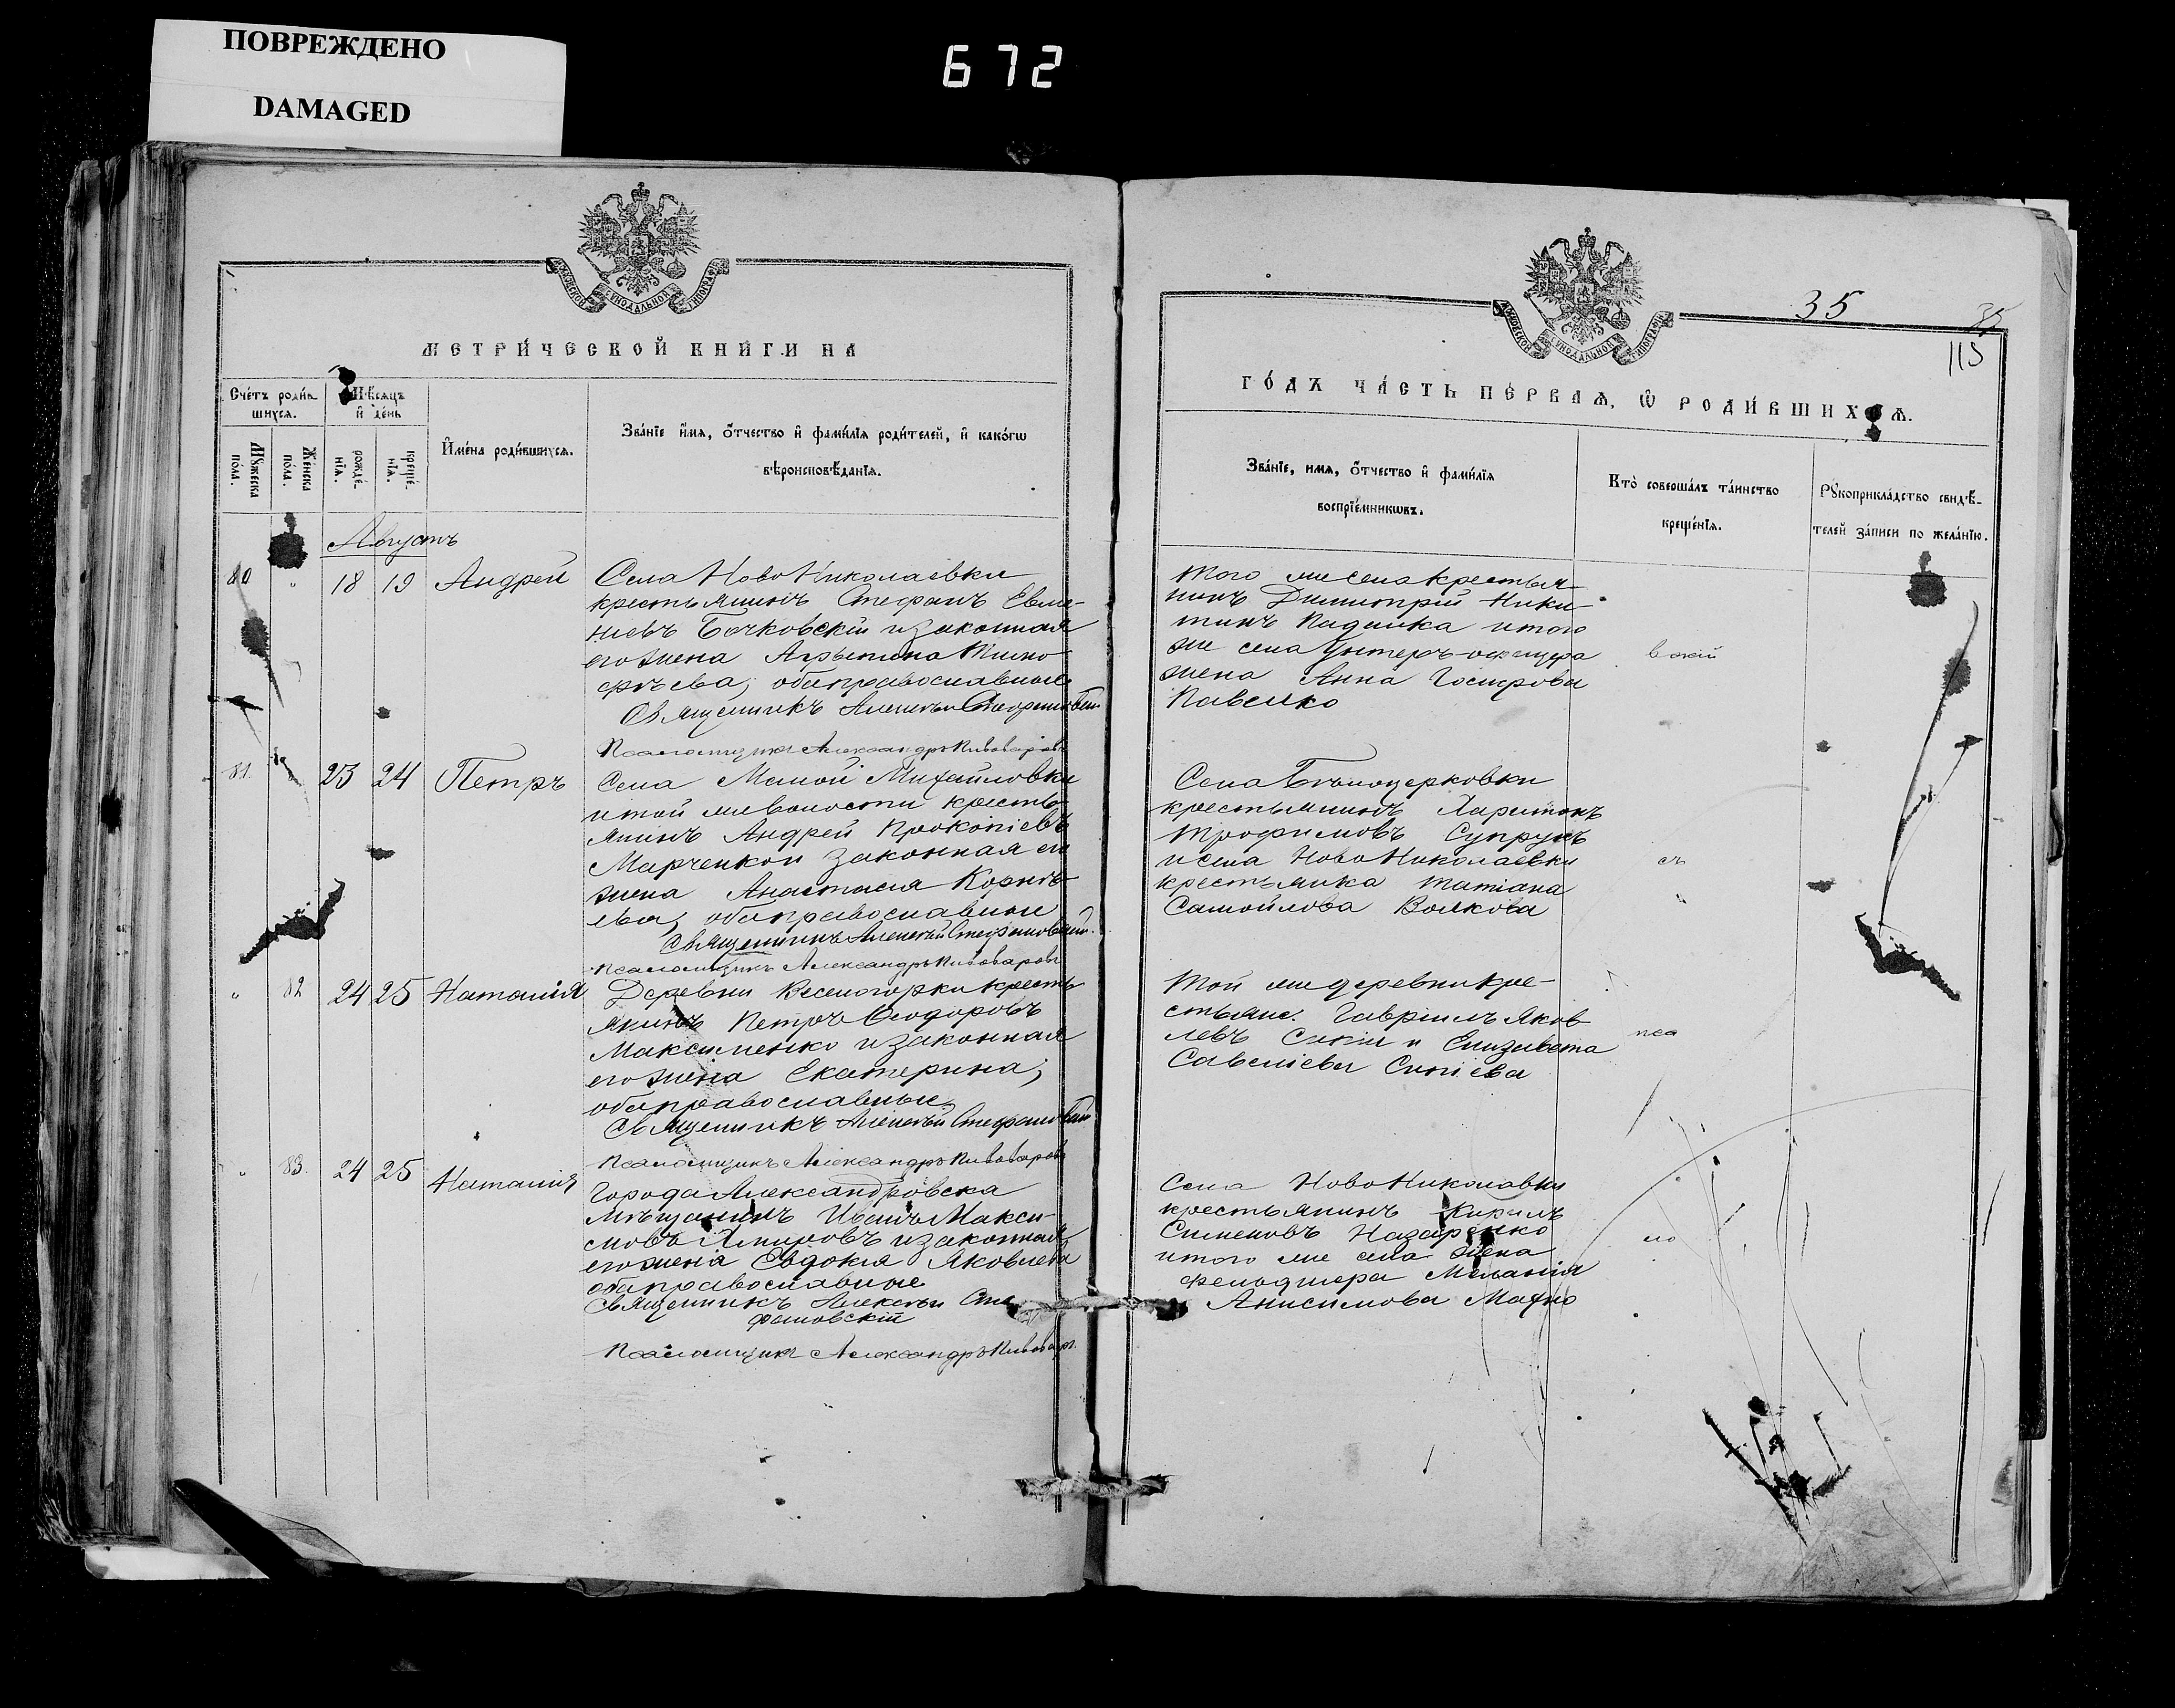 ПОВРЕЖДЕНО
DAMAGED
672
МОСКОВСКОЙ СѴНОДАЛЬНОЙ ТИПОГРАФІИ
МЕТРИ́ЧЕСКОЙ КНИ́ГИ НА
Сче́тъ роди́вшихся.
Мѣ́сяцъ и҆ де́нь
Мꙋ́жеска по́ла.
Же́нска по́ла.
рожде́нїѧ.
креще́нїѧ.
И҆мена̀ роди́вшихсѧ.
Зва́нїе и҆́мѧ, ѻ҆́тчество и҆ фами́лїѧ роди́телей, и҆ како́гѡ
вѣроисповѣ́данїѧ.
Августъ
80 " 18 19 Андрей
Села НовоНиколаевки
крестьянинъ Стефанъ Евме-
ніевъ Бочковскій и законная
его жена Агрипина Тимо-
фѣева, оба православные
Священникъ Алексѣй Стефановскій
Псаломщикъ Александръ Пивоваровъ
81 23 24 Петръ
Села Малой Михайловки
и той же волости кресть-
янинъ Андрей Прокопіевъ
Марченко и законная его
жена Анастасія Корнѣ-
ева, оба православные
Священникъ Алексѣй Стефановскій
Псаломщикъ Александръ Пивоваровъ
" 82 24 25 Наталія
Деревни Веселогорки кресть
янинъ Петръ Ѳеодоровъ
Максименко и законная
его жена Екатерина,
оба православные
Священникъ Алексѣй Стефановскій
Псаломщикъ Александръ Пивоваровъ
" 83 24 25 Наталія
Города Александровска
мѣщанинъ Иванъ Макси-
мовъ и законная
его жена Евдокія Яковлева
оба православные
Священникъ Алексѣй Сте
фановскій
Псаломщикъ Александръ Пивоваръ
МОСКОВСКОЙ СѴНОДАЛЬНОЙ ТИПОГРАФІИ
35
35
115
ГО́ДЪ ЧА́СТЬ ПЕ́РВАѦ, Ѽ РОДИ́ВШИХСѦ.
Зва́нїе, и҆мѧ, ѻ҆́тчество и҆ фами́лїѧ
воспрїе́мникѡвъ.
Кто̀ соверша́лъ та́инство
креще́нїѧ.
Рꙋкоприкла́дство свидѣ́-
телей за́писи по жела́нїю.
того же села крестья-
нинъ Димитрій Ники-
тинъ Падалка и того
же села Унтеръ-офицера
жена Анна
Павелко
Села Бѣлоцерковки
крестьянинъ Харитонъ
Трофимовъ Супрунъ
и села НовоНиколаевки
крестьянка Татіана
Самойлова Волкова
съ
Той же деревни кре-
стьяне. Гавріилъ Яков
левъ и Елизавета
Савеліева
пса
Села НовоНиколавки
крестьянинъ Кирилъ
Сименовъ Назаренко
и того же села жена
фельдшера Меланія
Анисимова Махно
его